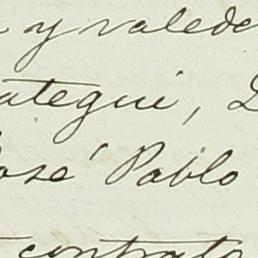 y valede
ategui, D
José Pablo
contrato